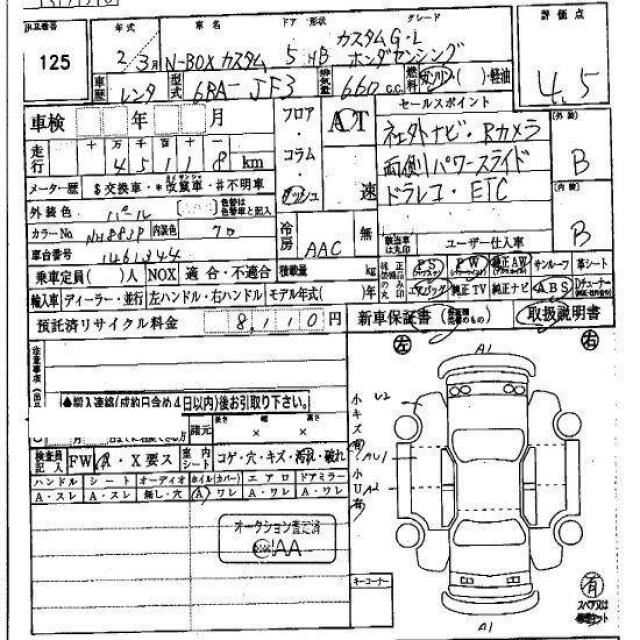 出品番号 年式 車名 ドア 形状 グレード 評価点
125 2/3月 N-BOX カスタム 5 HB カスタムG・L ホンダセンシング 4.5
車歴 レンタ 型式 6BA-JF3 排気量 660 c.c. 燃料 ガソリン・( )・軽油
車検 年 月 フロア・コラム・ AT セールスポイント
社外ナビ・Rカメラ [外装]
走行 十万千百十一 45118km
両側パワースライド B
メーター歴 $交換車・*改ざん車・#不明車 速 ドラレコ・ETC [内装]
外装色 パール 色替は色替車と記入 B
カラーNo NH883P 内装色 クロ 冷房 AAC 無 該当車は丸印 ユーザー仕入車
車台番号 1461344
PS PW 純正AW サンルーフ 革シート
乗車定員( )人 NOX 適合・不適合 積載量 kg 純正装備品のみ丸印
輸入車 ディーラー・並行 左ハンドル・右ハンドル モデル年式( )年 エアバッグ 純正TV 純正ナビ ABS
預託済リサイクル料金 8,110円 新車保証書 取扱説明書
注意事項 左 A1 右
小キズ有 U2
●搬入連絡(成約日含め4日以内)後お引取り下さい。
諸元 長さ 幅 高さ × ×
AU1
検査員記入 FW A・X要ス 室内シート コゲ・穴・キズ・汚れ・破れ
小U有 A2
ハンドル シート オーディオ ホイル(カバー) エアロ ドアミラー
A・スレ A・スレ 無し・穴 A ワレ A・ワレ A・ワレ
オークション査定済
AA
キーコーナー
有
A1